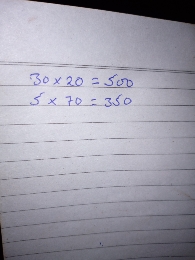 30 x 20 = 500
5 x 70 = 350